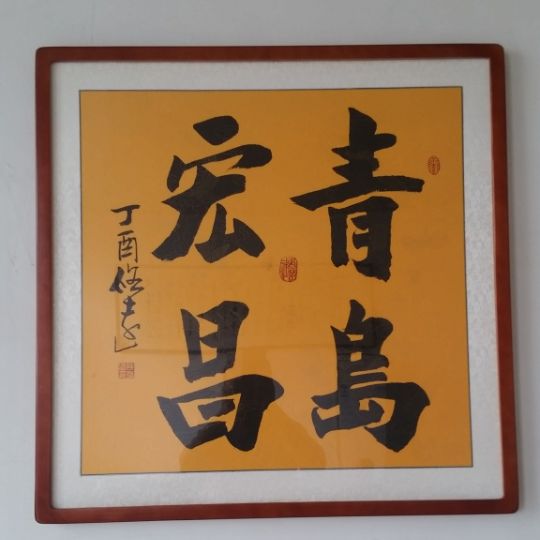 青島
宏昌
丁酉